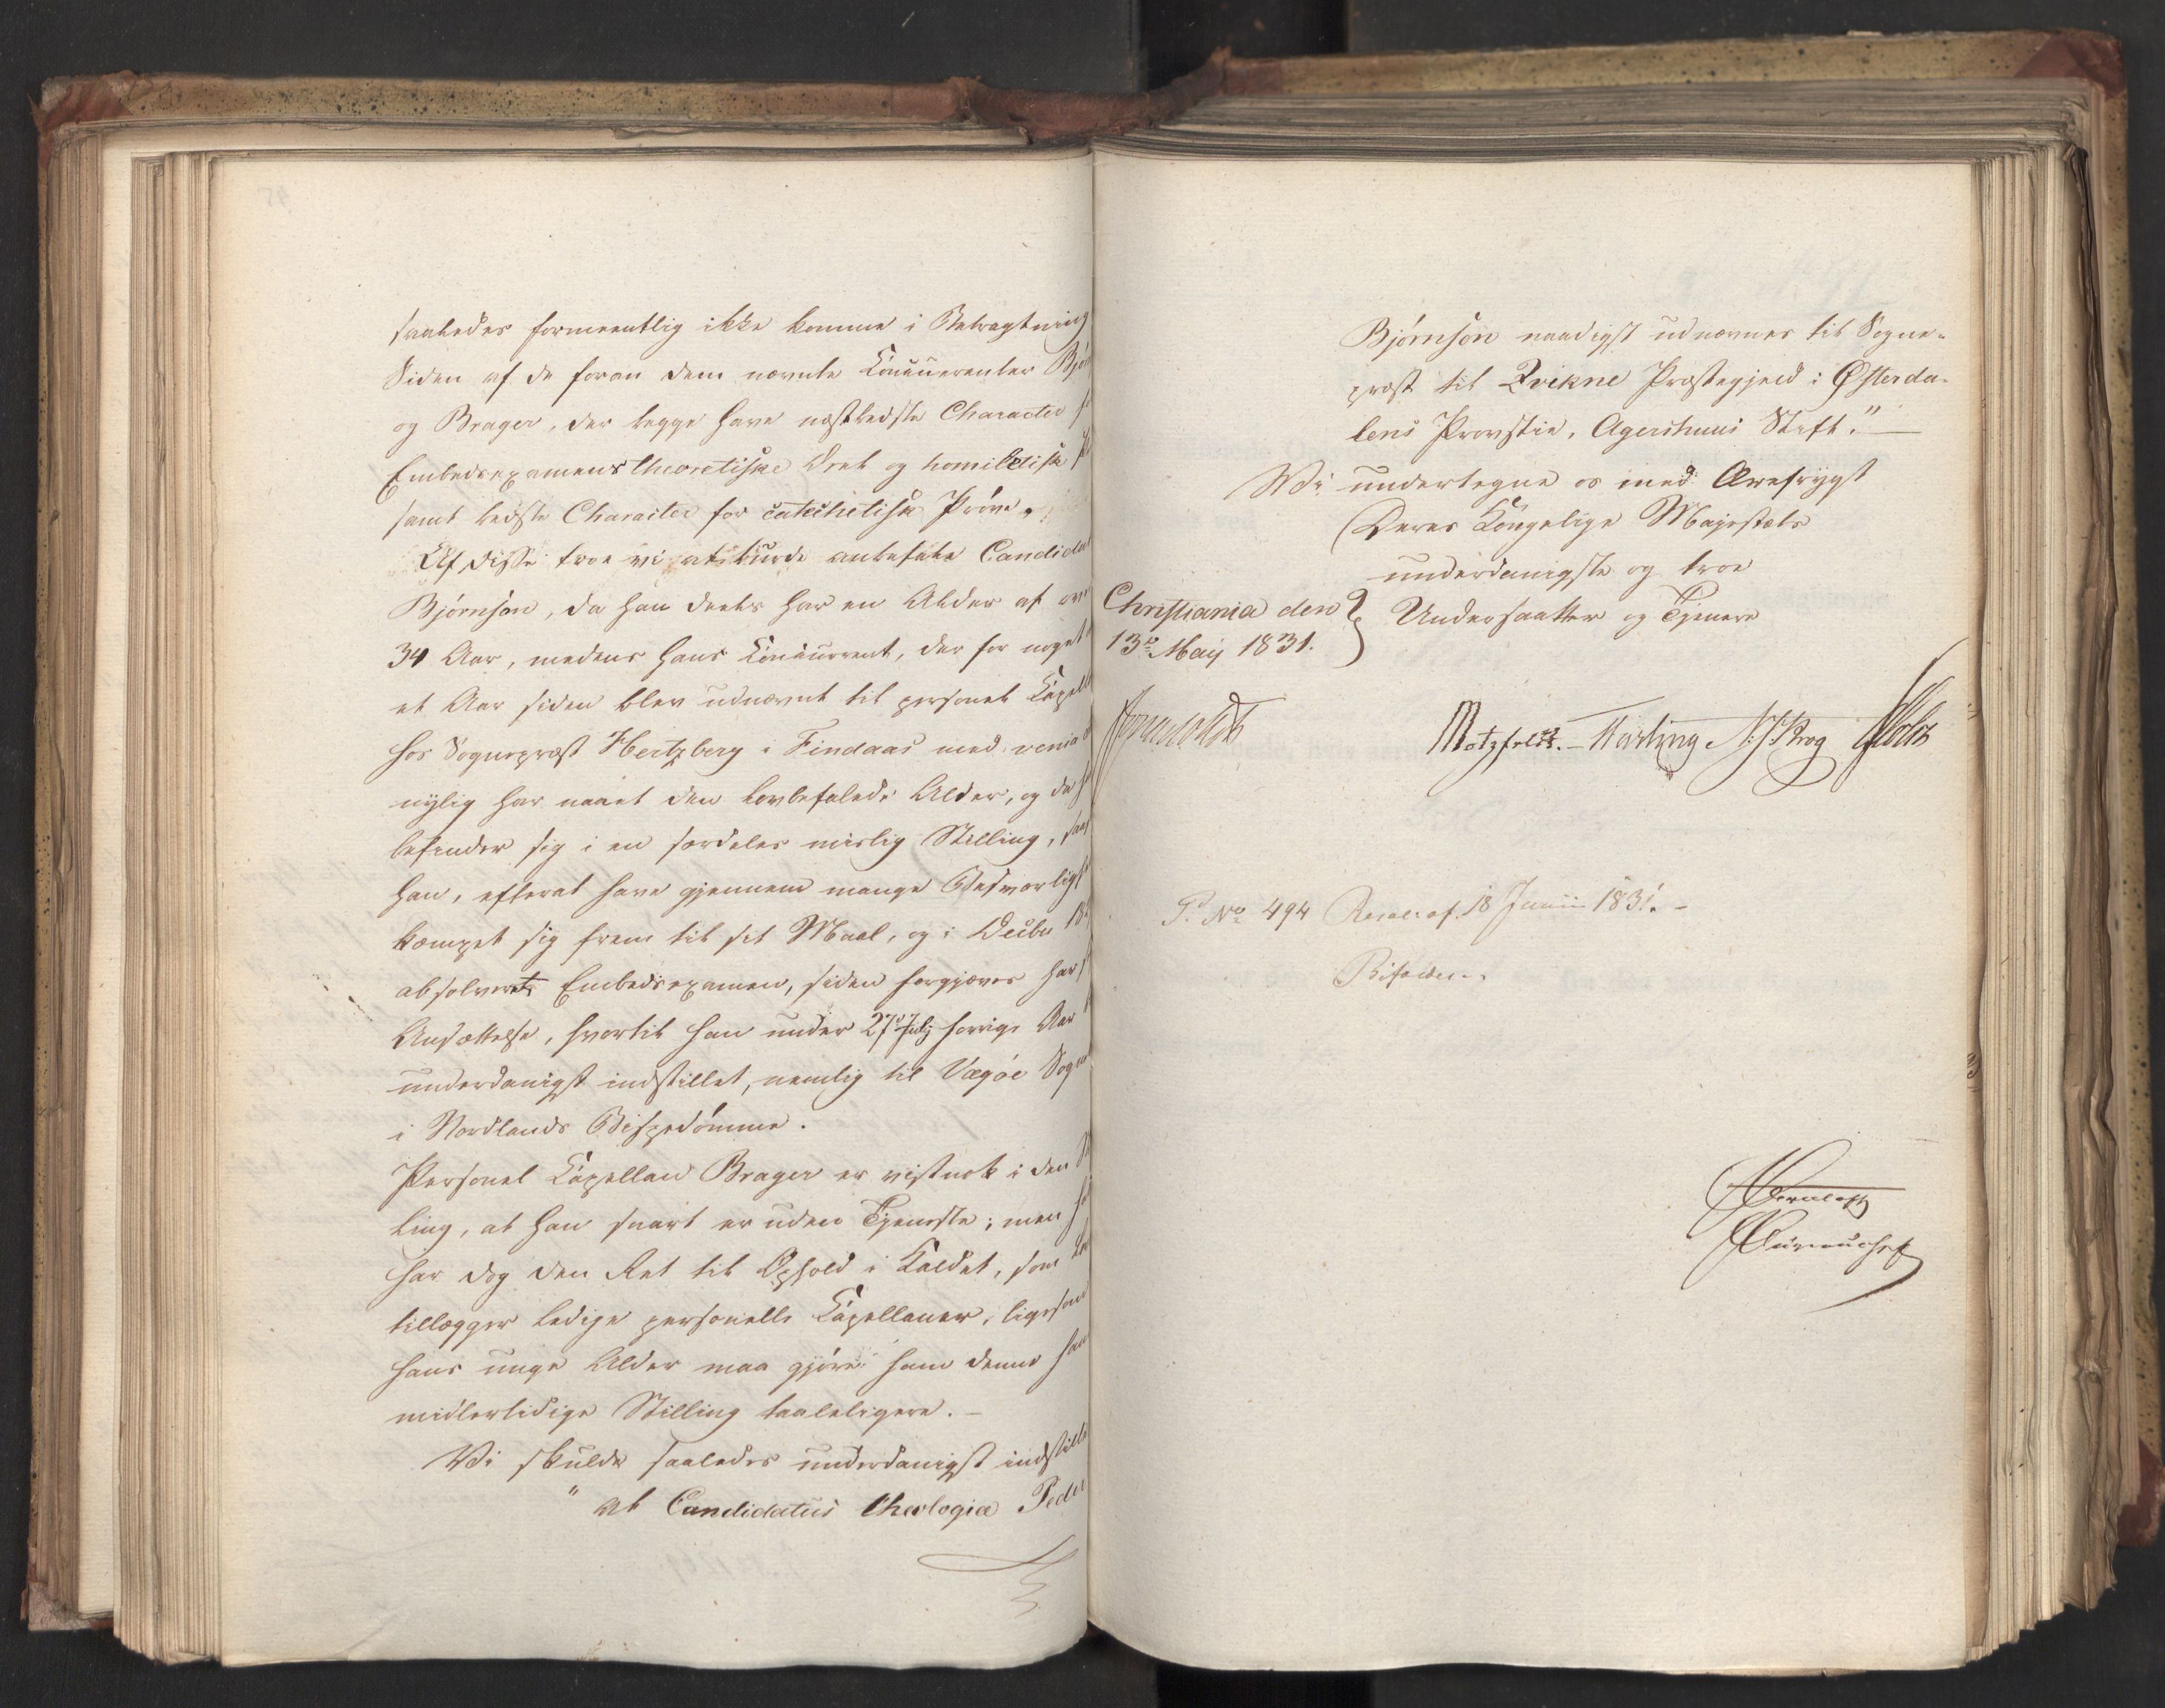 saaledes formeentlig ikke komme i Betragtning
Siden af de foran dem nævnte Concurrenter
og Brager, der begge have næstbedste Character
Embedsexamens theoretiske Deel og homiletisk
samt bedste Character for catechetisk Prøve.
Af disse troe vi at burde anbefale Candidat
Bjørnson, da han deels har en Alder af
34 Aar, medens hans Concurrent, der for noget
et Aar siden blev udnævnt til personel
hos Sognepræst Hertzberg i Findaas med venia
nylig har naaet den lovbefalede Alder, og
befinder sig i en særdeles mislig Stilling,
han, efterat have gjennem mange
kæmpet sig frem til sit Maal, og i Decbr
absolveret Embedsexamen, siden forgjæves har
Ansættelse, hvortil han under 27de July forrige Aar
underdanigst indstillet, nemlig til Vegøe
i Nordlands Bispedømme.
Personel Capellan Brager er vistnok i den
ling, at han snart er uden Tjeneste; men
har dog den Ret til Ophold i Kaldet, som
tillægger ledige personelle Capellaner, ligesom
hans unge Alder maa gjøre ham denne
midlertidige Stilling taaleligere. –
Vi skulde saaledes underdanigst indstille
" at Candidatus theologiæ Peder
Bjørnson naadigst udnævnes til Sogne-
præst til Qvikne Præstegjeld i Østerda-
lens Provstie, Agershuus Stift." –
Vi undertegne os med Ærefrygt
Deres Kongelige Majestæts
underdanigste og troe
Undersaatter og Tjenere
Christiania den
13de Maij 1831.
Motzfeldt. – N: J Krog
P. No 494 Resol: af 18 Junii 1831. –
Bifaldes.